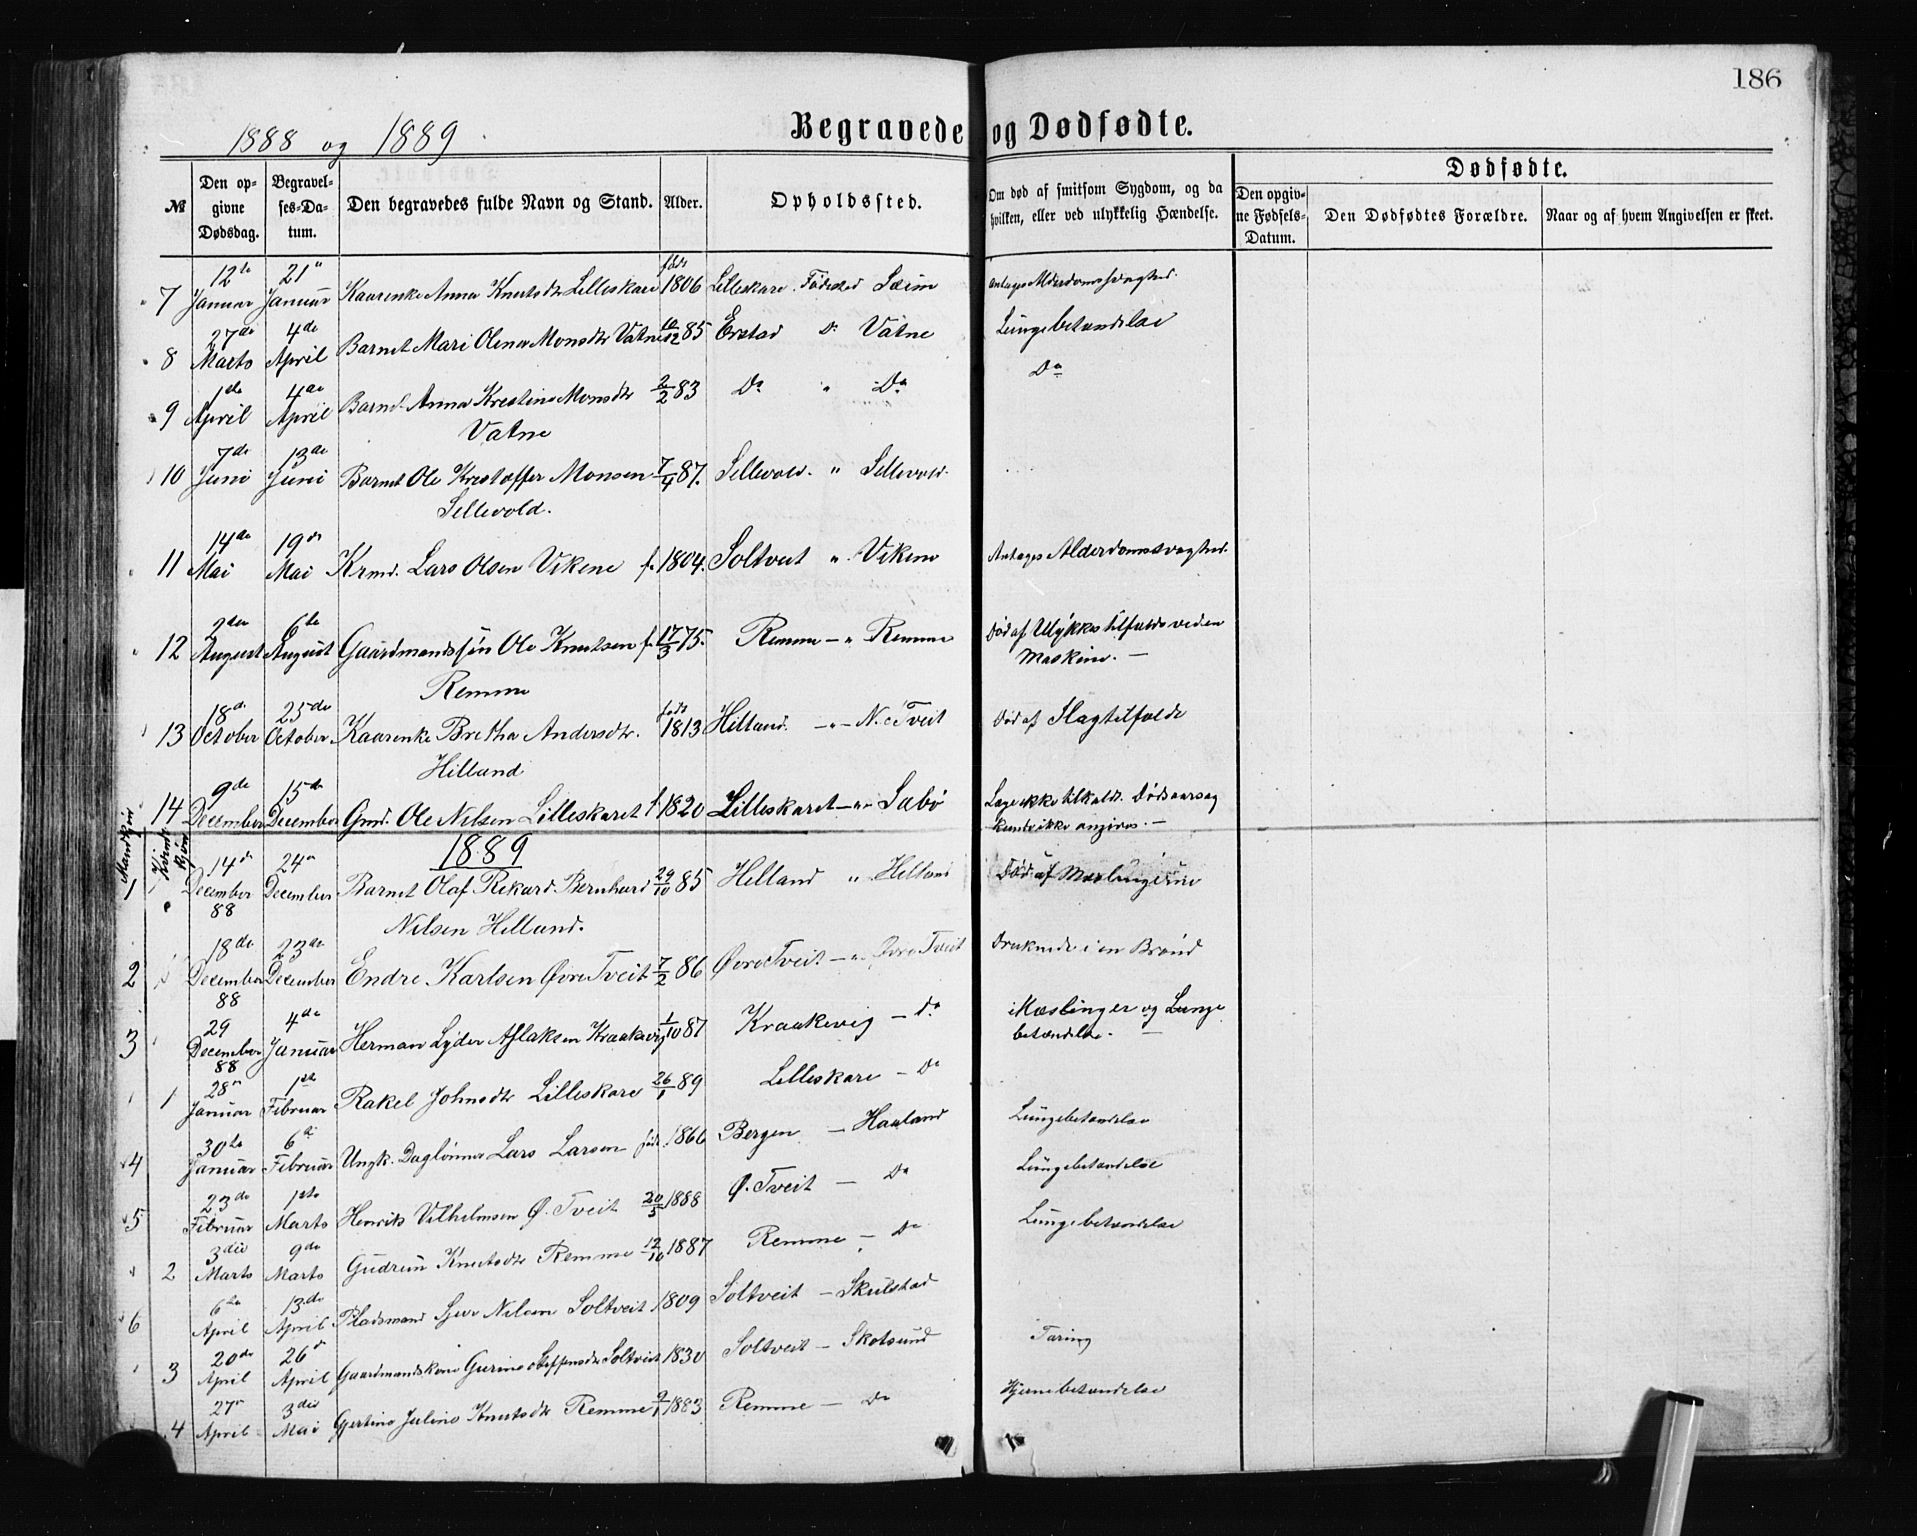 186
1888 og 1889
Begravede og Dødfødte.
Dødfødte.
№ Den op- Begravel- Den begravedes fulde Navn og Stand. Alder. Opholdssted. Om død af smitsom Sygdom, og da Den opgiv- Den Dødfødtes Forældre. Naar og af hvem Angivelsen er skeet.
givne ses-Da- hvilken, eller ved ulykkelig Hændelse. ne Fødsels-
Dødsdag. tum. Datum.
12te 21 føds
7 Januar Januar Kaarenke Anna Knutsdtr Lilleskare 1806 Lilleskare Fødested Sæim Antages Alderdomssvaghed.
27de 4de
8 Marts April Barnet Mari Olena Monsdtr Vatne 10/12 85 Erstad Do Vatne Lungebetændelse
1de 4de
9 April April Barnet Anna Kristine Monsdtr 2/2 83 Do " Do Do
Vatne
7de 13de
10 Juni Juni Barnet Ole Kristoffer Monsen 7/4 87. Sellevold. " Sellevold.
Sellevold.
14de 19de
11 Mai Mai Krmd. Lars Olsen Vikene f. 1804. Soltveit " Vikene Antages Alderdomssvaghed.
2den 6te
12 August August Gaardmandssøn Ole Knutsen f. 17/3 75. Remme – " Remme Død af Ulykkestilfælde ved en
Remme Maskine. —
18de 25de føds
13 October October Kaarenke Bretha Andersdtr. 1813 Hilland. – " – N. Tveit Død af Slagtilfælde
Hilland
9de 15de
14 December December Gmd. Ole Nilsen Lilleskaret f 1820 Lilleskaret – " – Sæbø Læge ikke tilkaldt. Dødsaarsag
kunde ikke angives. —
Mandkjøn Kvindekjøn
1889
14de 24de
1 December December Barnet Olaf Rikard Bernhard 29/10 85 Helland " Helland Død af Mæslingerne
88 Nilsen Helland.
18de 23de
2 December December Endre Karlsen Øvre Tveit 7/2 86 Øvre Tveit – " – Øvre Tveit Druknede i en Brønd
88
29 4de
3 December Januar Herman Lyder Aslaksen Kraakevig 1/10 87 Kraakevig – Do Mæslinger og Lunge
88 betændelse. —
28de 1ste
1 Januar Februar Rakel Johnsdtr Lilleskare 26/1 89 Lilleskare – Do
30te 6te
4 Januar Februar Ungk. Daglønner Lars Larsen føds. 1866 Bergen – Haaland Lungebetændelse
23de 1ste
5 Februar Marts Henrik Vilhelmsen Ø. Tveit 20/5 1888 Ø. Tveit – Do Lungebetændelse
3die 9de
2 Marts Marts Gudrun Knutsdtr Remme 12/10 1887 Remme – Do Lungebetændelse
6te 13de
6 April April Pladsmand Sjur Nilsen Soltveit 1809 Soltveit – Skulstad
20de 26de
3 April April Gaardmandskone Gurine Steffensdtr Soltveit 1830 Soltveit – Skotsund Tæring
27de 3die
4 April Mai Gjertine Juline Knutsdtr Remme 9/1 1883 Remme – Do Hjernebetændelse